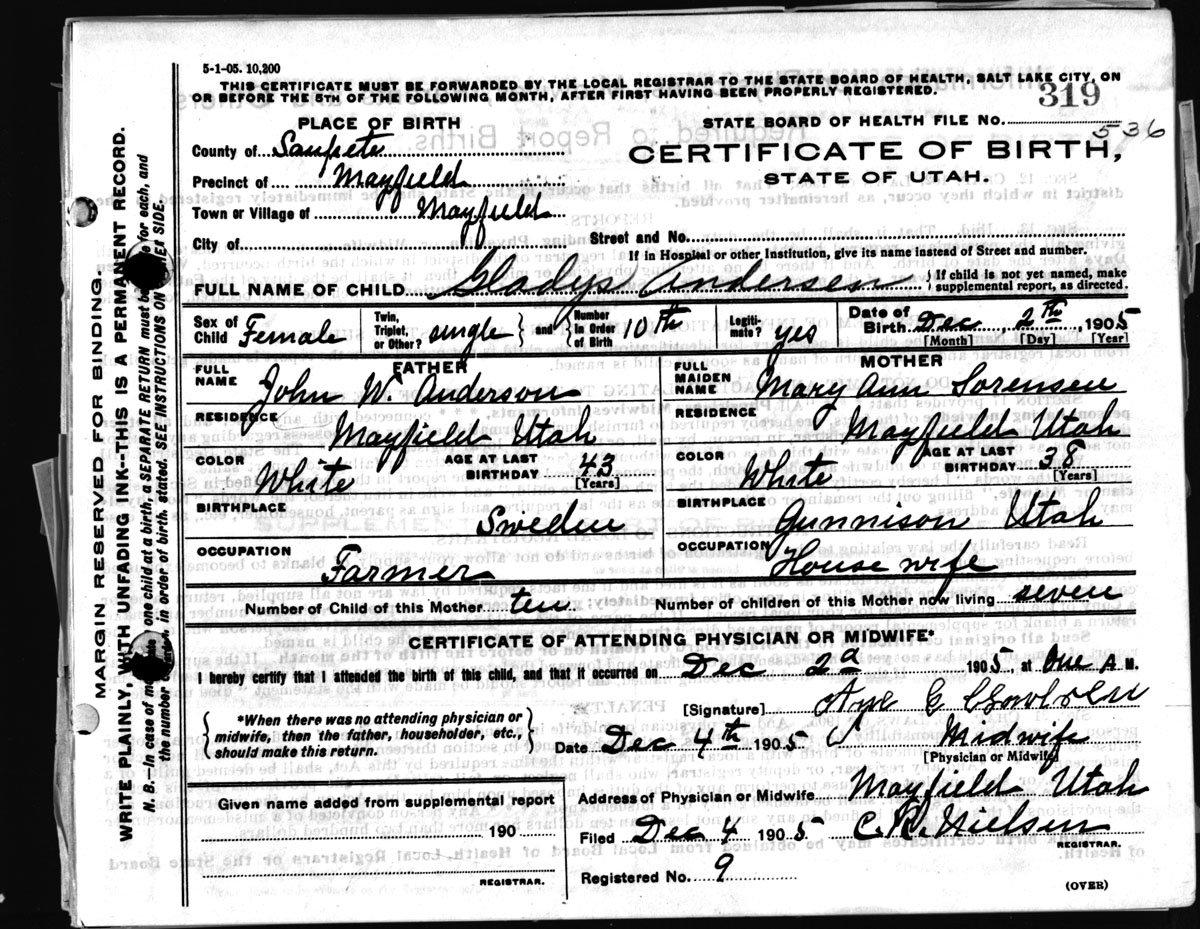 5-1-05. 10,200
THIS CERTIFICATE MUST BE FORWARDED BY THE LOCAL REGISTRAR TO THE STATE BOARD OF HEALTH, SALT LAKE CITY, ON
OR BEFORE THE 5TH OF THE FOLLOWING MONTH, AFTER FIRST HAVING BEEN PROPERLY REGISTERED.
319
PLACE OF BIRTH
STATE BOARD OF HEALTH FILE NO.
536
County of Sanpete
CERTIFICATE OF BIRTH,
Precinct of Mayfield
STATE OF UTAH.
Town or Village of Mayfield
City of
Street and No.
If in Hospital or other Institution, give its name instead of Street and number.
FULL NAME OF CHILD Gladys Andersen
If child is not yet named, make
supplemental report, as directed.
Sex of Child Female
Twin, Triplet, or Other? single and Number in Order of Birth 10th
Legiti-mate? yes
Date of Birth Dec 2th 1905
[Month] [Day] [Year]
FATHER
MOTHER
FULL NAME John W. Anderson
FULL MAIDEN NAME Mary Ann Sorensen
RESIDENCE Mayfield Utah
RESIDENCE Mayfield Utah
COLOR White AGE AT LAST BIRTHDAY 43 [Years]
COLOR White AGE AT LAST BIRTHDAY 38 [Years]
BIRTHPLACE Sweden
BIRTHPLACE Gunnison Utah
OCCUPATION Farmer
OCCUPATION House wife
Number of Child of this Mother ten
Number of children of this Mother now living seven
CERTIFICATE OF ATTENDING PHYSICIAN OR MIDWIFE*
I hereby certify that I attended the birth of this child, and that it occurred on Dec 2d 1905 at One A. M.
[Signature]
*When there was no attending physician or
midwife, then the father, householder, etc.,
should make this return.
Date Dec 4th 1905
Midwife
[Physician or Midwife]
Given name added from supplemental report
190
REGISTRAR.
Address of Physician or Midwife Mayfield Utah
Filed Dec 4 1905 C. R. Nielsen
REGISTRAR.
Registered No. 9
(OVER)
MARGIN RESERVED FOR BINDING.
WRITE PLAINLY, WITH UNFADING INK--THIS IS A PERMANENT RECORD.
N. B.--In case of one child at a birth, a SEPARATE RETURN must be for each, and
the number in order of birth, stated. SEE INSTRUCTIONS ON SIDE.